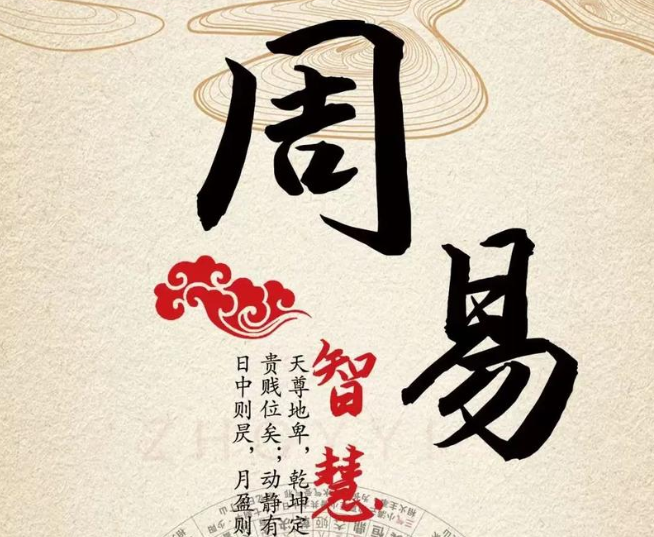 周易
智慧
天尊地卑，乾坤定
贵贱位矣；动静有
日中则昃，月盈则